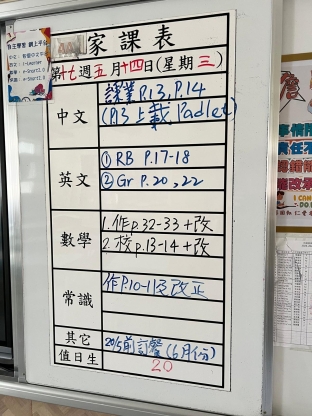 家課表
第十七週五月十四日(星期三)
中文
課業P.13, P.14
(P.13上載Padlet)
英文
① RB P.17-18
② Gr P.20, 22
數學
1. 作p.32-33+改
2. 校p.13-14+改
常識
作P.10-11及改正
其它
20/5前訂餐(6月份)
值日生
20
自主學習 網上平台